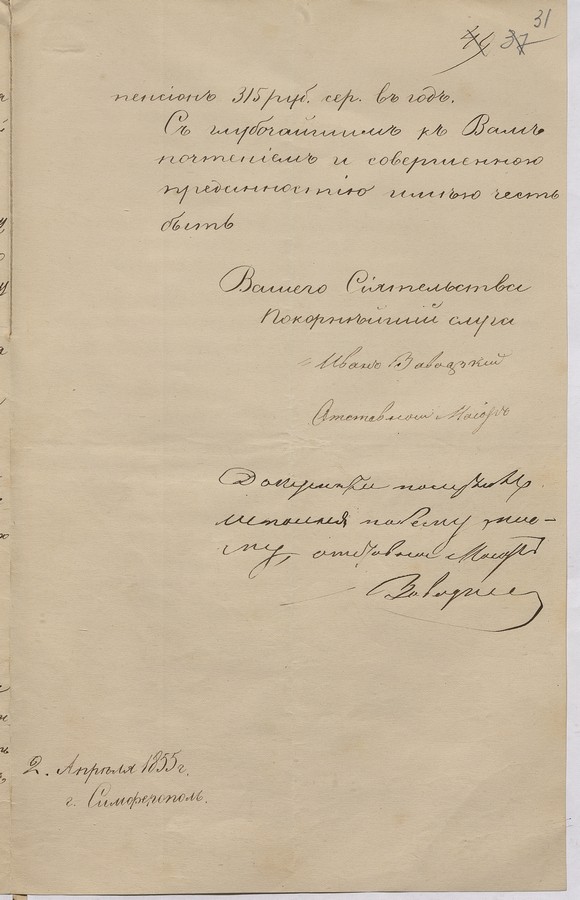 31
49 37
пенсіонъ 315 руб. сер. въ годъ.
Съ глубочайшимъ къ Вамъ
почтеніемъ и совершенною
преданностію имѣю честь
быть
Вашего Сіятельства
Покорнѣйшій слуга
Иванъ Завадзкій
Отставной Маіоръ
Документы получилъ
отставной Маіоръ
2. Апрѣля 1855 г.
г. Симферополь.